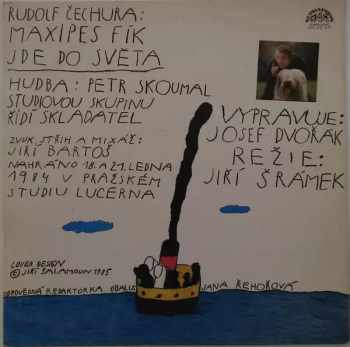 RUDOLF ČECHURA:
MAXIPES FÍK
JDE DO SVĚTA
HUDBA: PETR SKOUMAL
STUDIOVOU SKUPINU
ŘÍDÍ SKLADATEL
ZVUK, STŘIH A MIXÁŽ:
JIŘÍ BARTOŠ
NAHRÁNO 18. A 21. LEDNA
1984 V PRAŽSKÉM
STUDIU LUCERNA
VYPRAVUJE:
JOSEF DVOŘÁK
REŽIE:
JIŘÍ ŠRÁMEK
COVER DESIGN
© JIŘÍ BALAMOUN 1985
ODPOVĚDNÁ REDAKTORKA OBALU: JANA ŘEHOŘOVÁ
SUPRAPHON